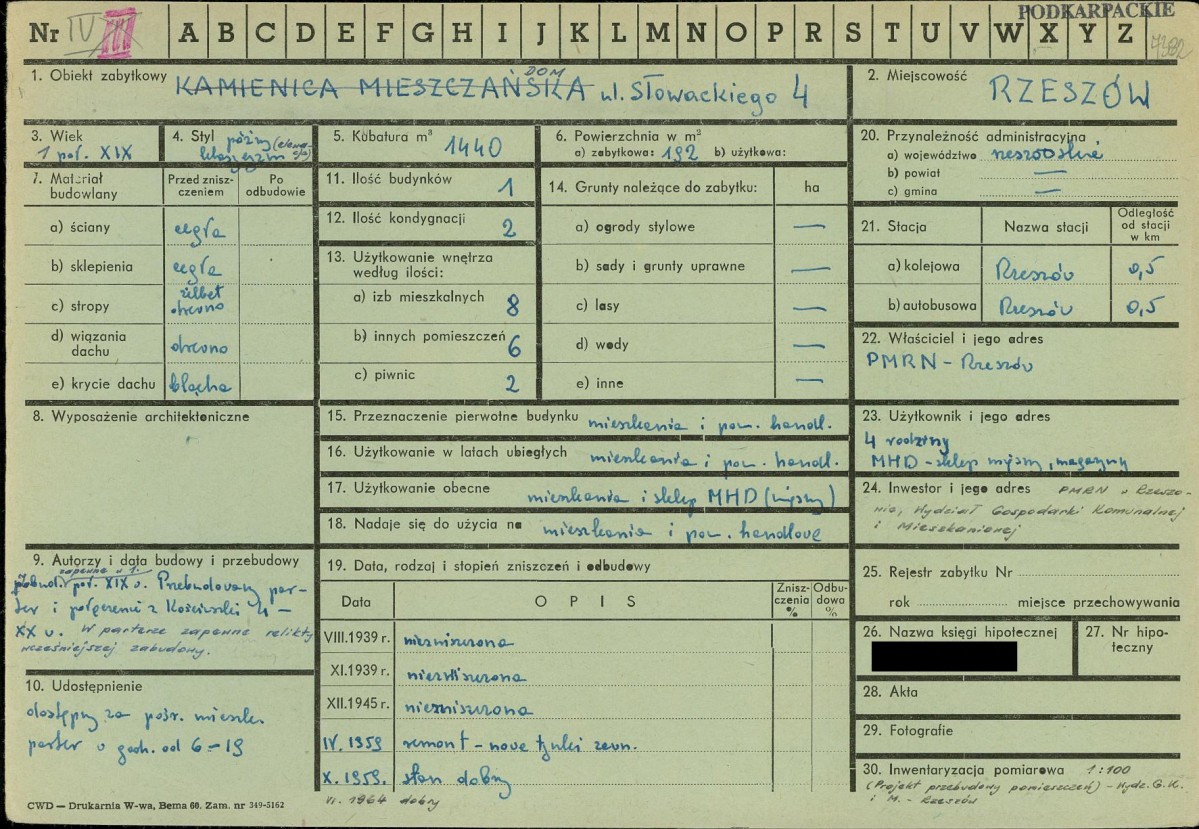 PODKARPACKIE
Nr IV III A B C D E F G H I J K L M N O P R S T U V W X Y Z
1. Obiekt zabytkowy KAMIENICA MIESZCZAŃSKA DOM ul. Słowackiego 4
2. Miejscowość RZESZÓW
3. Wiek
1 poł. XIX
4. Styl późny
klasycyzm
5. Kubatura m³ 1440
6. Powierzchnia w m²
a) zabytkowa: 192 b) użytkowa:
7. Materiał budowlany
Przed zniszczeniem
Po odbudowie
a) ściany cegła
b) sklepienia cegła
c) stropy żelbet
drewno
d) wiązania dachu drewno
e) krycie dachu blacha
8. Wyposażenie architektoniczne
9. Autorzy i data budowy i przebudowy
zapewne w 1.
poł. XIX w. Przebudowany par-
ter i połączenie z Kościuszki 4 –
XX w. W parterze zapewne relikty
wcześniejszej zabudowy.
10. Udostępnienie
dostępny za pośr. mieszk.
parter w godz. od 6–19
11. Ilość budynków 1
12. Ilość kondygnacji 2
13. Użytkowanie wnętrza
według ilości:
a) izb mieszkalnych 8
b) innych pomieszczeń 6
c) piwnic 2
14. Grunty należące do zabytku: ha
a) ogrody stylowe —
b) sady i grunty uprawne —
c) lasy —
d) wody —
e) inne —
15. Przeznaczenie pierwotne budynku mieszkania i pom. handl.
16. Użytkowanie w latach ubiegłych mieszkania i pom. handl.
17. Użytkowanie obecne mieszkania i sklep MHD (mięsny)
18. Nadaje się do użycia na mieszkania i pom. handlowe
19. Data, rodzaj i stopień zniszczeń i odbudowy
Data OPIS Zniszczenia % Odbudowa %
VIII.1939 r. niezniszczona
XI.1939 r. niezniszczona
XII.1945 r. niezniszczona
IV.1959 remont – nowe tynki zewn.
X.1959. stan dobry
VI. 1964 dobry
20. Przynależność administracyjna
a) województwo rzeszowskie
b) powiat —
c) gmina —
21. Stacja Nazwa stacji Odległość od stacji w km
a) kolejowa Rzeszów 0,5
b) autobusowa Rzeszów 0,5
22. Właściciel i jego adres
PMRN – Rzeszów
23. Użytkownik i jego adres
4 rodziny
MHD – sklep mięsny, magazyny
24. Inwestor i jego adres PMRN w Rzeszo-
wie, Wydział Gospodarki Komunalnej
i Mieszkaniowej
25. Rejestr zabytku Nr
rok miejsce przechowywania
26. Nazwa księgi hipotecznej
27. Nr hipoteczny
28. Akta
29. Fotografie
30. Inwentaryzacja pomiarowa 1:100
(Projekt przebudowy pomieszczeń) – Wydz. G.K.
i M. – Rzeszów
CWD — Drukarnia W-wa, Bema 60. Zam. nr 349-5162